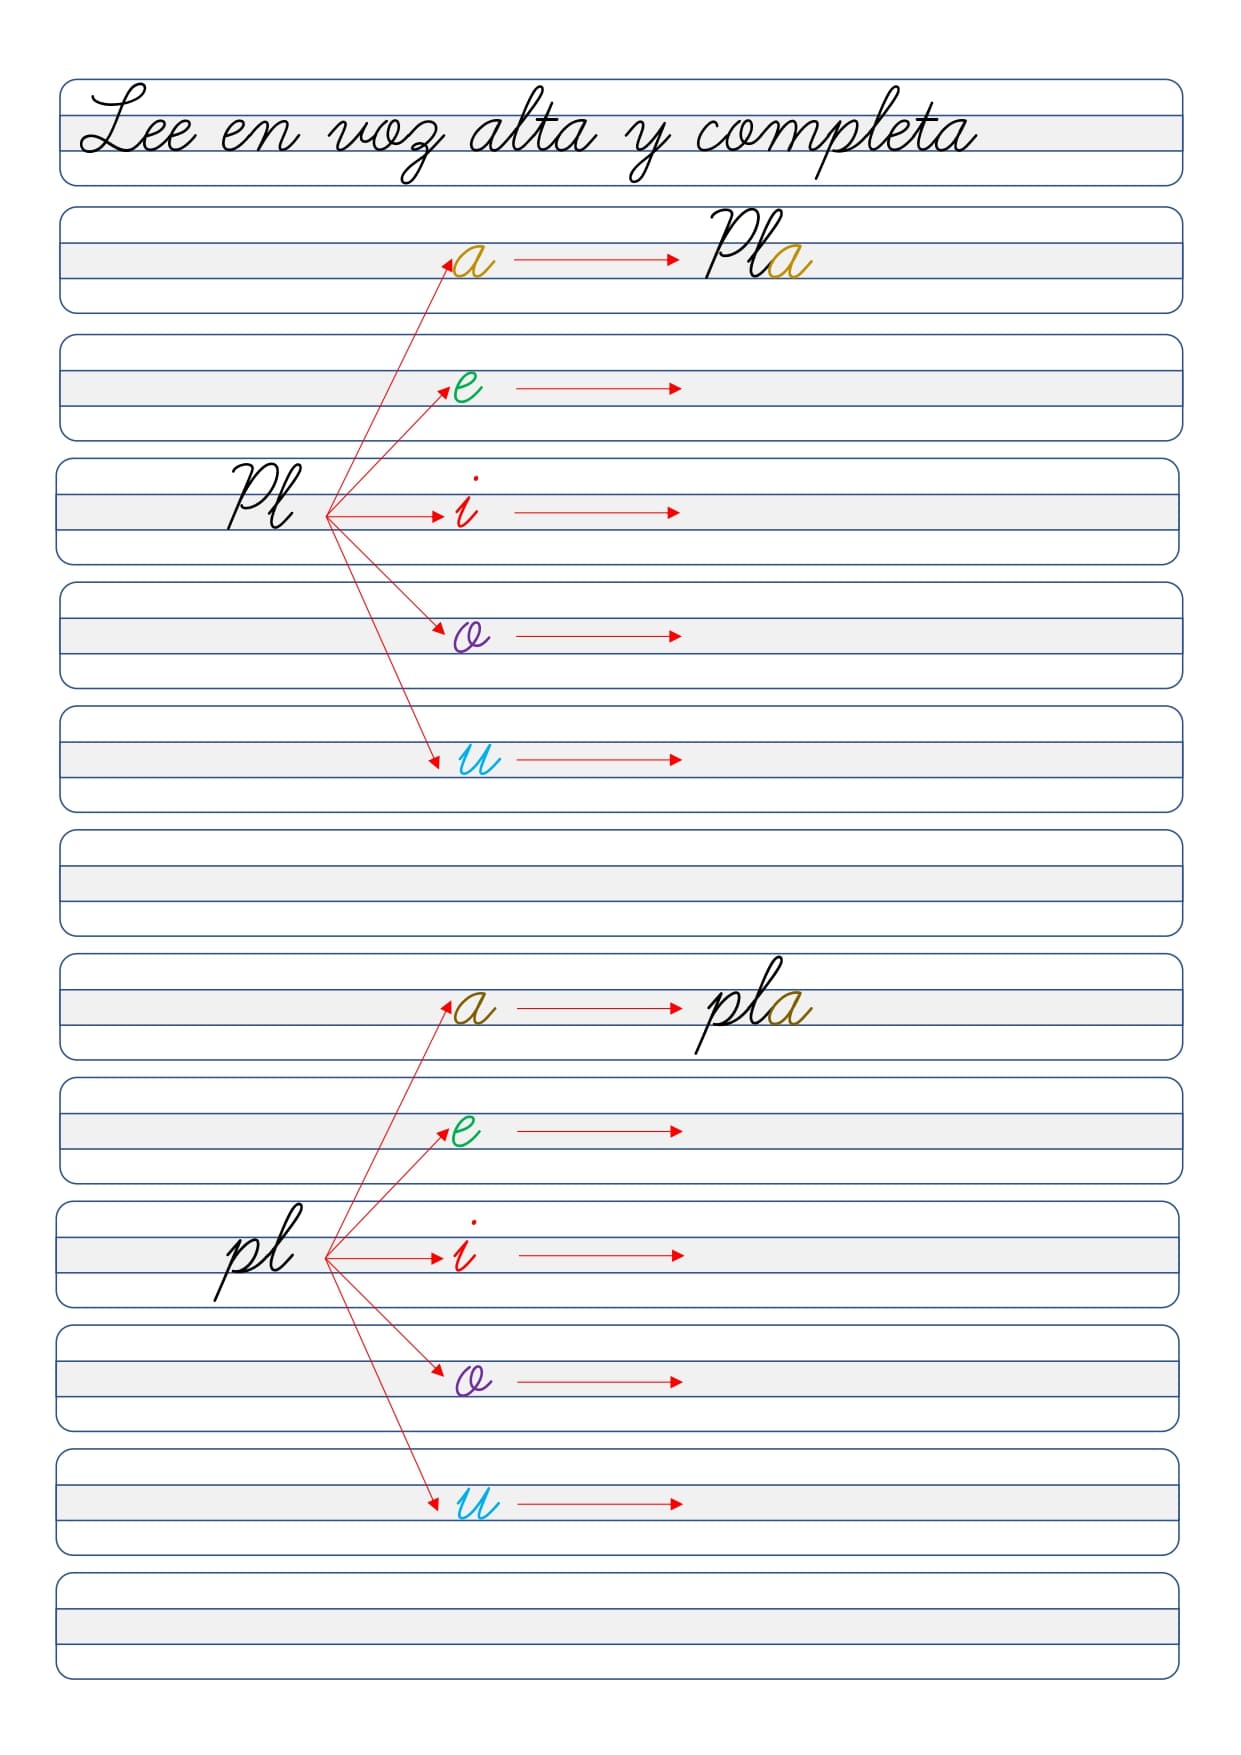 Lee en voz alta y completa
a Pla
e
Pl i
o
u
a pla
e
pl i
o
u